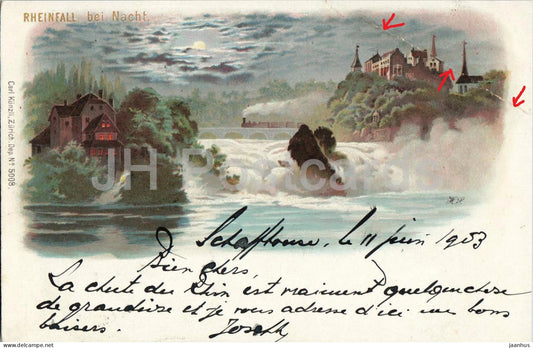 RHEINFALL bei Nacht.
Carl Künzli, Zürich, Dep. No 5008.
JH Postcards
Schaffhouse, le 11 juin 1903
Bien chers,
La chute du Rhin est vraiment quelquechose
de grandiose et je vous adresse d'ici un bons
baisers. Joseph
jaanhus © www.jhpostcard.com